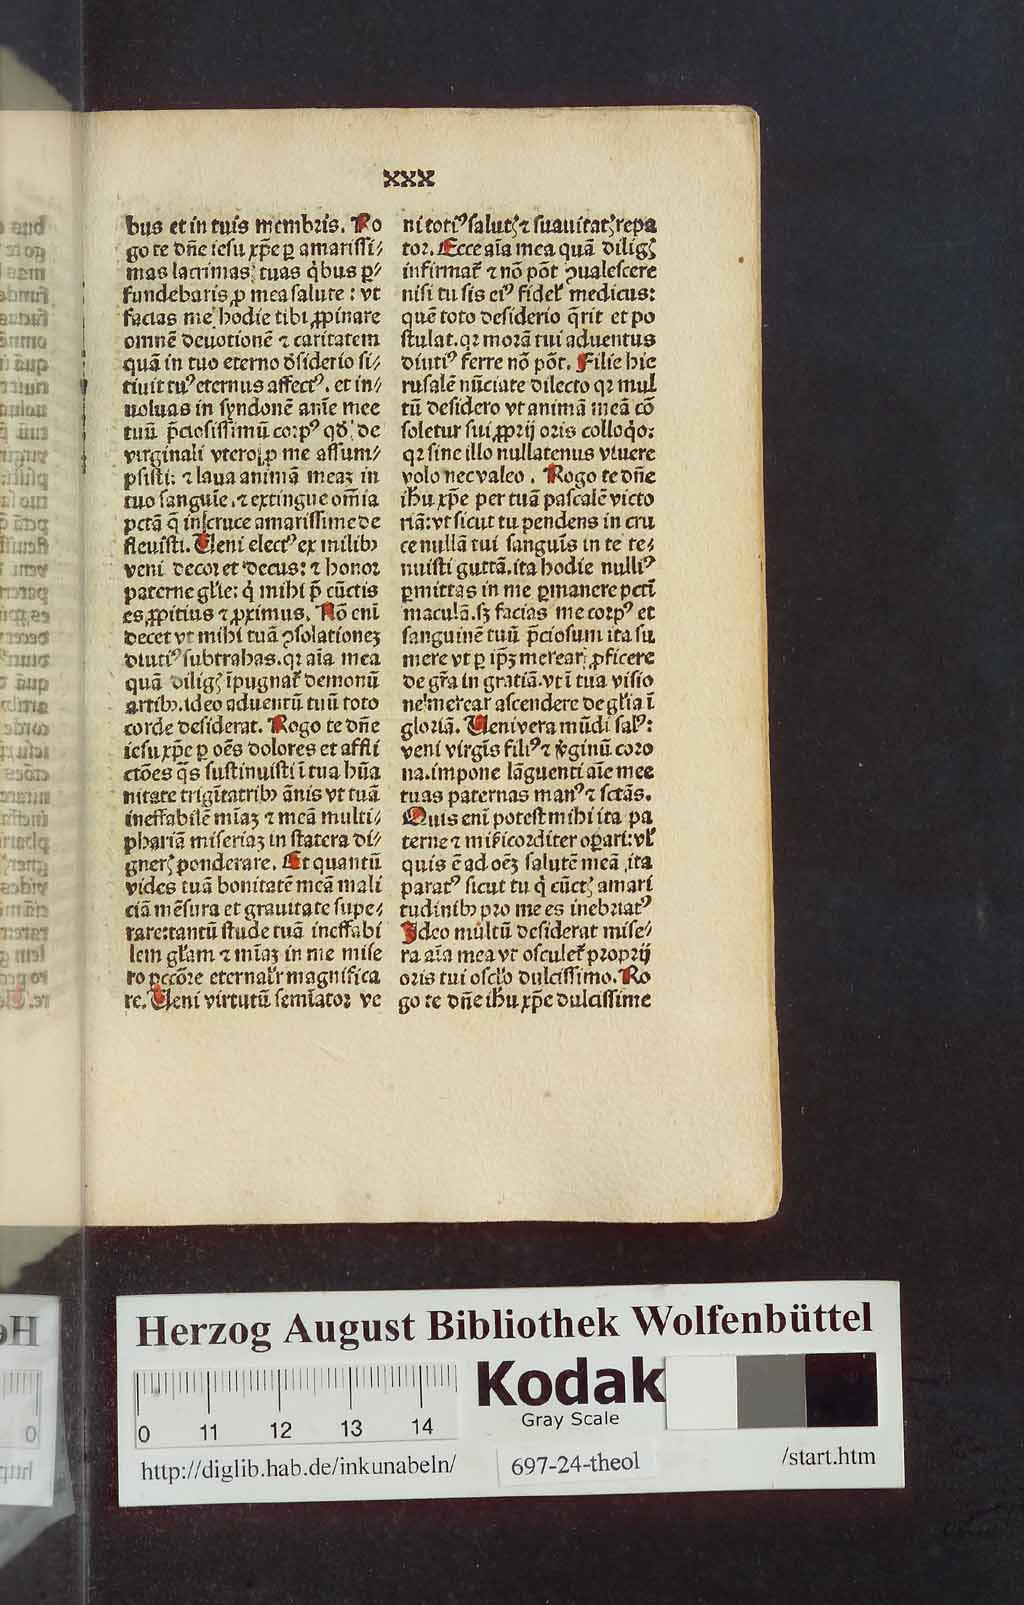 xxx
bus et in tuis membris. Ro
go te dñe iesu xp̄e ꝑ amarissi⸗
mas lacrimas tuas q̇bus ꝑ⸗
fundebaris ꝓ mea salute: vt
facias me hodie tibi ꝓpinare
omnē deuotionē ⁊ caritatem
quā in tuo eterno dꝰsiderio si⸗
tiuit tuꝰ eternus affectꝰ. et in⸗
uoluas in syndonē anīe mee
tuū p̄ciosissimū corpꝰ qd̄ de
virginali vtero ꝓ me assum⸗
psisti: ⁊ laua animā meaꝫ in
tuo sanguīe. ⁊ extingue om̄ia
pctā q̄ in cruce amarissime de
fleuisti. Ueni electꝰ ex milibꝫ
veni decor et decus: ⁊ honor
paterne gl̄ie: q̇ mihi p̄ cūctis
es ꝓpitius ⁊ ꝓximus. Nō enī
decet vt mihi tuā ꝯsolationeꝫ
diutiꝰ subtrahas. qꝛ aīa mea
quā diligꝭ īpugnat̄ demonū
artibꝫ. ideo aduentū tuū toto
corde desiderat. Rogo te dñe
iesu xp̄e ꝑ oēs dolores et affli
ctōes q̄s sustinuisti ī tua hūa
nitate trigītatribꝫ ānis vt tuā
ineffabilē mīaꝫ ⁊ meā multi⸗
phariā miseriaꝫ in statera di⸗
gnerꝭ ponderare. Et quantū
vides tuā bonitatē meā mali
ciā mēsura et grauitate supe⸗
rare: tantū stude tuā ineffabi
lem gl̄iam ⁊ mīaꝫ in me mise
ro pccōre eternal̄r magnifica
re. Ueni virtutū semīator ve
ni totiꝰ salutꝭ ⁊ suauitatꝭ repa
tor. Ecce aīa mea quā diligꝭ
infirmat̄ ⁊ nō pōt ꝯualescere
nisi tu sis eiꝰ fidel̄ medicus:
quē toto desiderio q̄rit et po
stulat. qꝛ morā tui aduentus
diutiꝰ ferre nō pōt. Filie hie
rusalē nūciate dilecto qꝛ mul
tū desidero vt animā meā cō
soletur sui ꝓprij oris colloq̇o:
qꝛ sine illo nullatenus viuere
volo nec valeo. Rogo te dñe
ih̄u xp̄e per tuā pascalē victo
riā: vt sicut tu pendens in cru
ce nullā tui sanguīs in te te⸗
nuisti guttā. ita hodie nulliꝰ
ꝑmittas in me ꝑmanere pctī
maculā. sꝫ facias me corpꝰ et
sanguinē tuū p̄ciosum ita su
mere vt ꝑ ip̄ꝫ merear ꝓficere
de gr̄a in gratiā. vt ī tua visio
ne merear ascendere de gl̄ia ī
gloriā. Ueni vera mūdi salꝰ:
veni virgīs filiꝰ ⁊ v̄ginū coro
na. impone lāguenti aīe mee
tuas paternas manꝰ ⁊ sctās.
Quis enī potest mihi ita pa
terne ⁊ mīẜicorditer oꝑari: vl̄
quis ē ad oēꝫ salutē meā ita
paratꝰ sicut tu q̇ cūctꝭ amari
tudinibꝫ pro me es inebriatꝰ
Ideo multū desiderat mise⸗
ra aīa mea vt osculet̄ proprij
oris tui oscl̄o dulcissimo. Ro
go te dñe ih̄u xp̄e dulcissime
Herzog August Bibliothek Wolfenbüttel
Kodak
Gray Scale
0 11 12 13 14
http://diglib.hab.de/inkunabeln/ 697-24-theol /start.htm